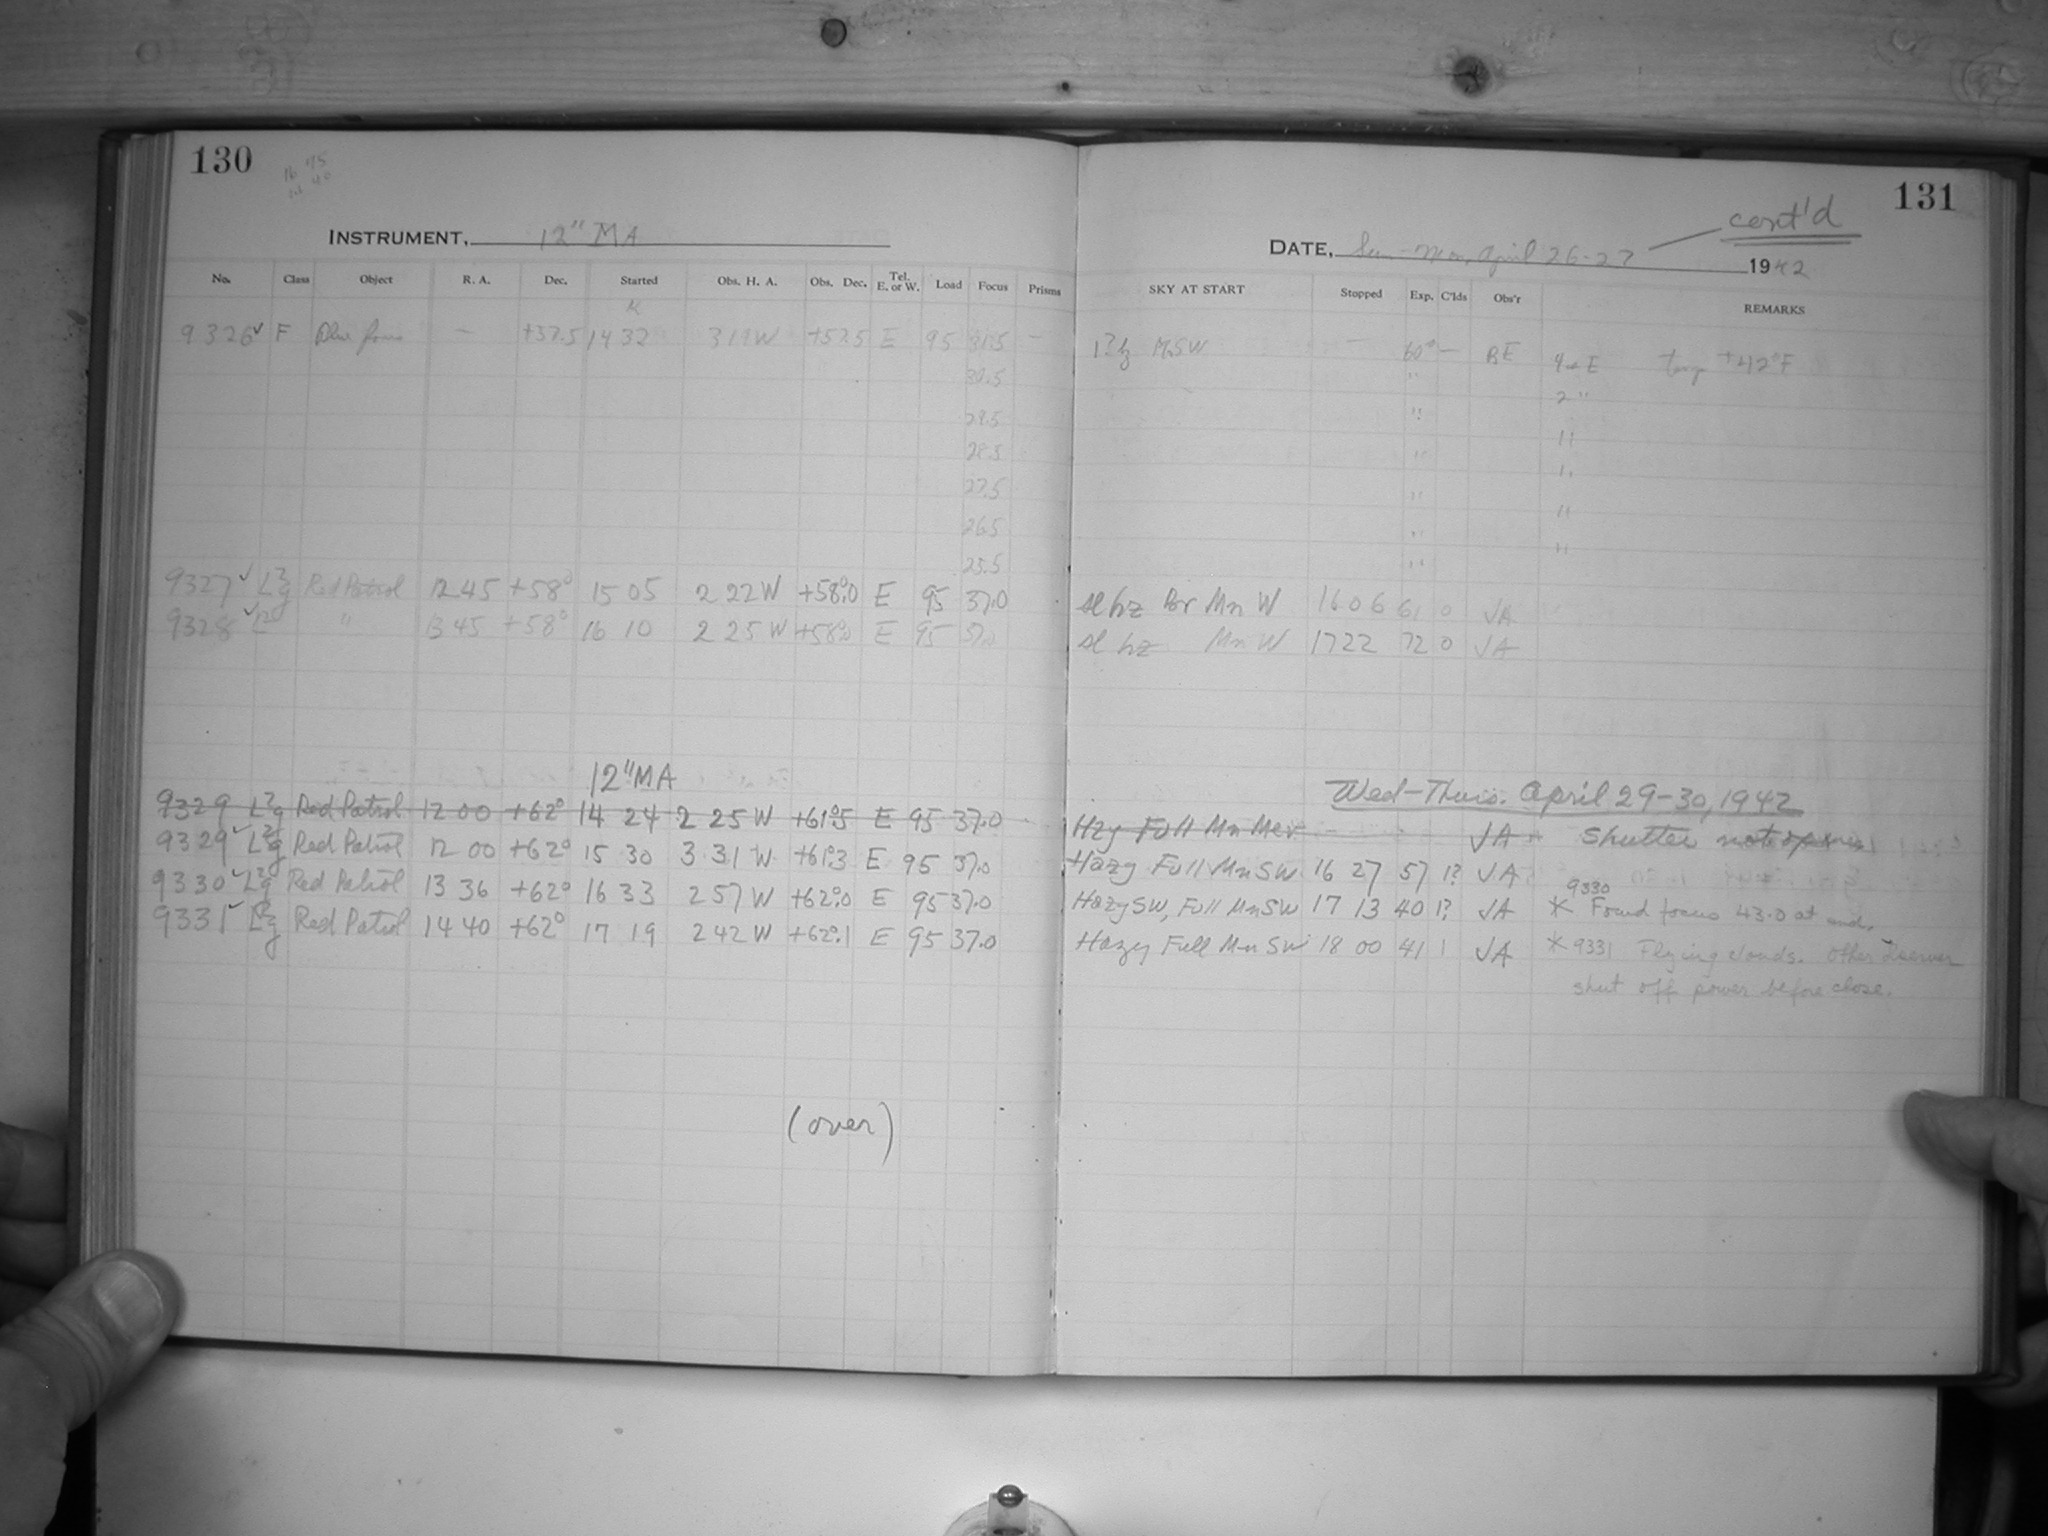 130
INSTRUMENT, 12" MA
No. Class Object R. A. Dec. Started Obs. H. A. Obs. Dec. Tel. E. or W. Load Focus Prisms
9326 ✓ F +37.5 14 32 3 19 W +57.5 E 95 31.5 —
30.5
29.5
28.5
27.5
26.5
25.5
9327 ✓ Red Patrol 12 45 +58° 15 05 2 22 W +58°.0 E 95 37.0
9328 ✓ " 13 45 +58° 16 10 2 25 W +58°.0 E 95 37.0
12" MA
9329 Red Patrol 12 00 +62° 14 24 2 25 W +61°.5 E 95 37.0
9329 ✓ Red Patrol 12 00 +62° 15 30 3 31 W +61°.3 E 95 37.0
9330 ✓ Red Patrol 13 36 +62° 16 33 2 57 W +62°.0 E 95 37.0
9331 ✓ Red Patrol 14 40 +62° 17 19 2 42 W +62°.1 E 95 37.0
(over)
131
cont'd
DATE, Sun-Mon, April 26-27 1942
SKY AT START Stopped Exp. C'lds Obs'r REMARKS
— 60s — BE temp +42°F
" 2 "
" "
" "
" "
" "
"
sl hz Br Mn W 16 06 61 0 JA
sl hz Mn W 17 22 72 0 JA
Wed-Thurs. April 29-30, 1942
Hzy Full Mn Mer JA Shutter not open
Hazy Full Mn SW 16 27 57 1? JA
Hazy SW, Full Mn SW 17 13 40 1? JA * 9330 Found focus 43.0 at end.
Hazy Full Mn SW 18 00 41 1 JA * 9331 Flying clouds. Other observer
shut off power before close.